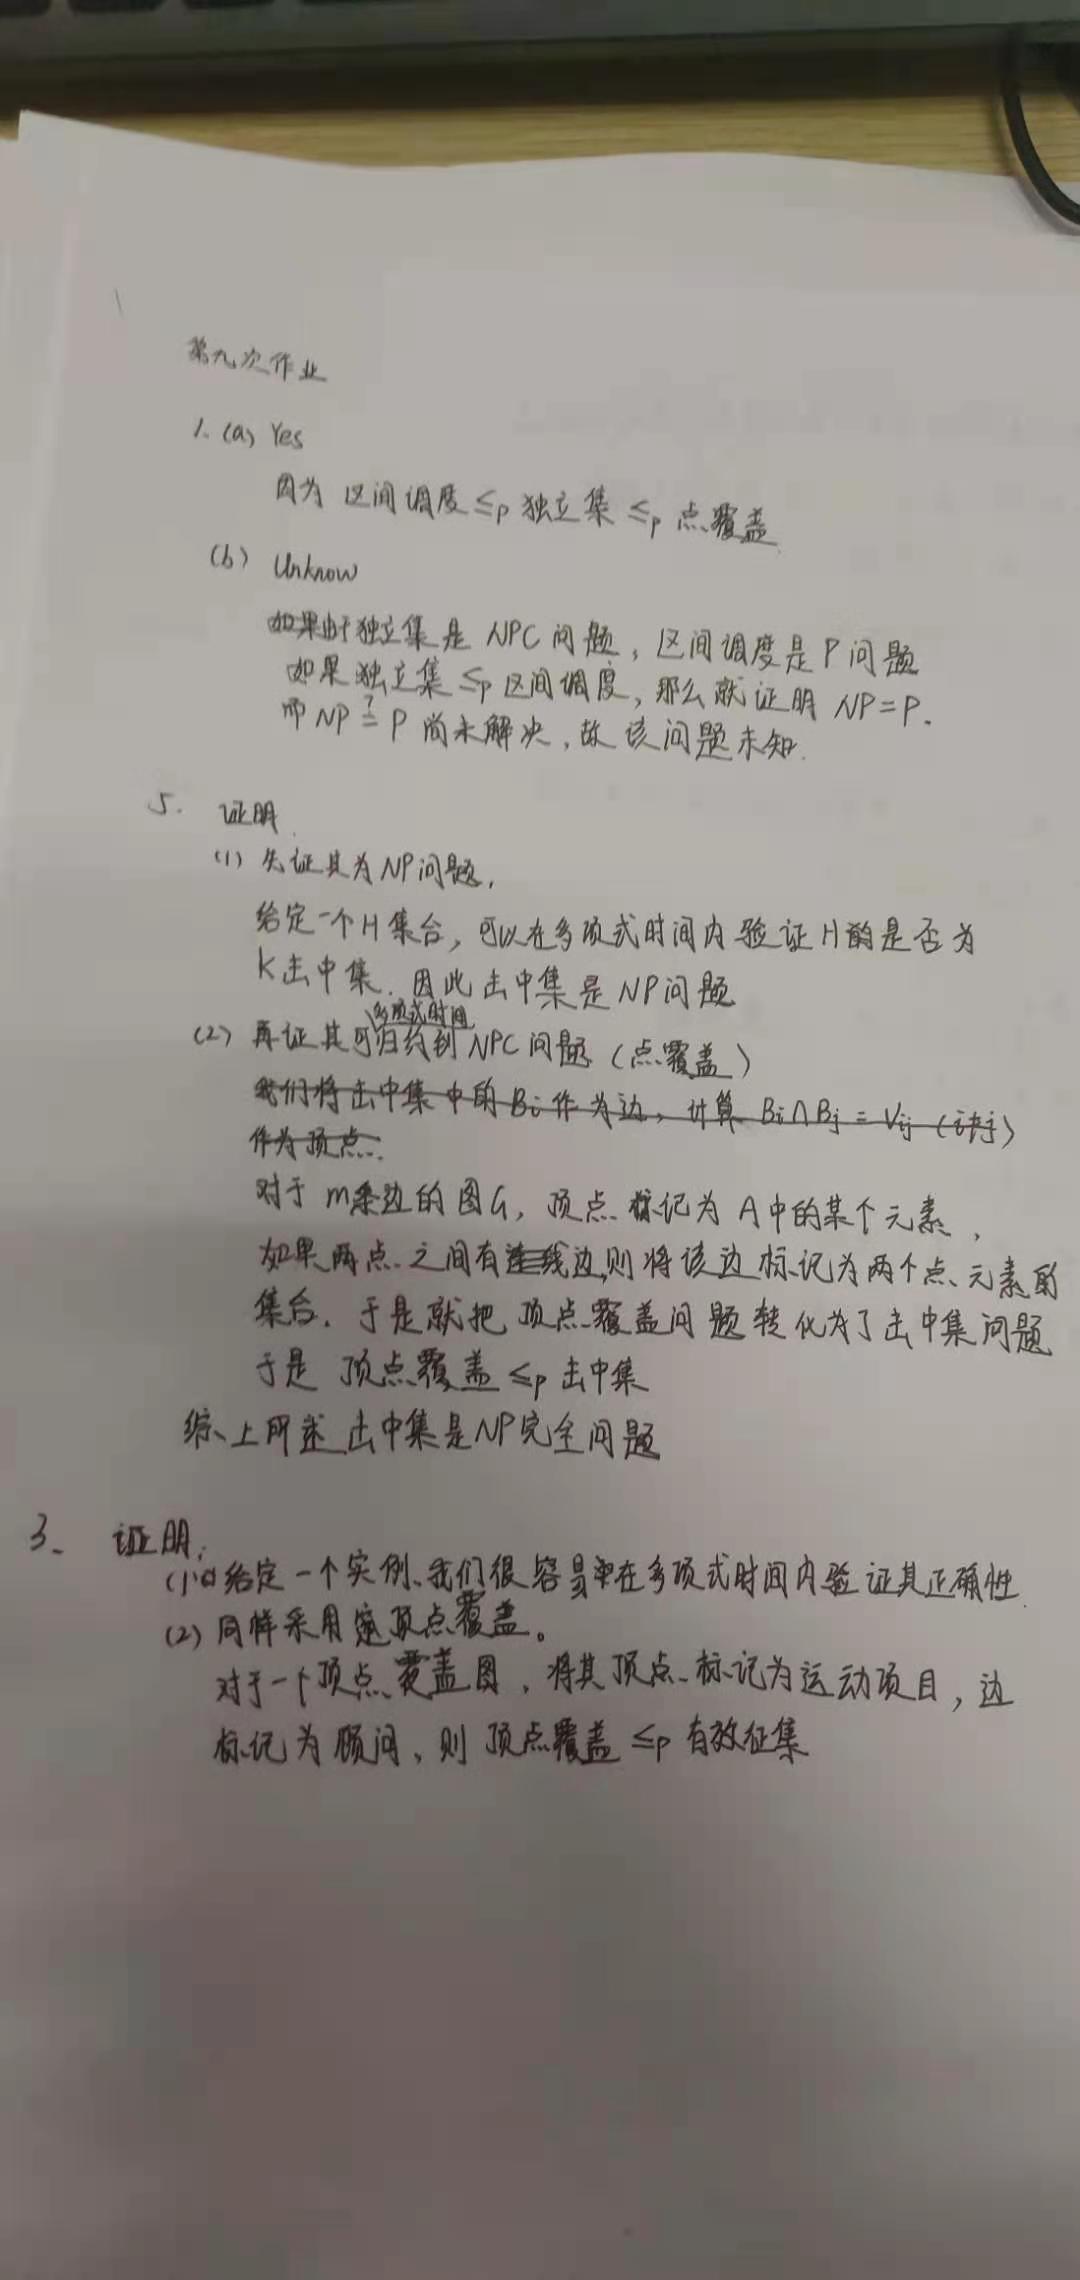 第九次作业
1. (a) Yes
因为 区间调度 ≤p 独立集 ≤p 点覆盖
(b) Unknow
独立集是 NPC 问题，区间调度是 P 问题
如果 独立集 ≤p 区间调度，那么就证明 NP=P.
而 NP ≟ P 尚未解决，故该问题未知.
5. 证明
(1) 先证其为 NP 问题，
给定一个 H 集合，可以在多项式时间内验证 H 是否为
K 击中集. 因此击中集是 NP 问题
多项式时间
(2) 再证其可归约到 NPC 问题 (点覆盖)
我们将击中集中的 Bi 作为边，计算 Bi∩Bj = Vij (i≠j)
作为顶点.
对于 m条边的图G，顶点标记为 A中的某个元素，
如果两点之间有连线边,则将该边标记为两个点元素的
集合. 于是就把 顶点覆盖问题转化为了击中集问题
于是 顶点覆盖 ≤p 击中集
综上所述 击中集是NP完全问题
3. 证明:
(1) 给定一个实例、我们很容易在多项式时间内验证其正确性.
(2) 同样采用 顶点覆盖。
对于一个顶点覆盖图，将其顶点标记为运动项目，边
标记为顾问，则 顶点覆盖 ≤p 有效征集